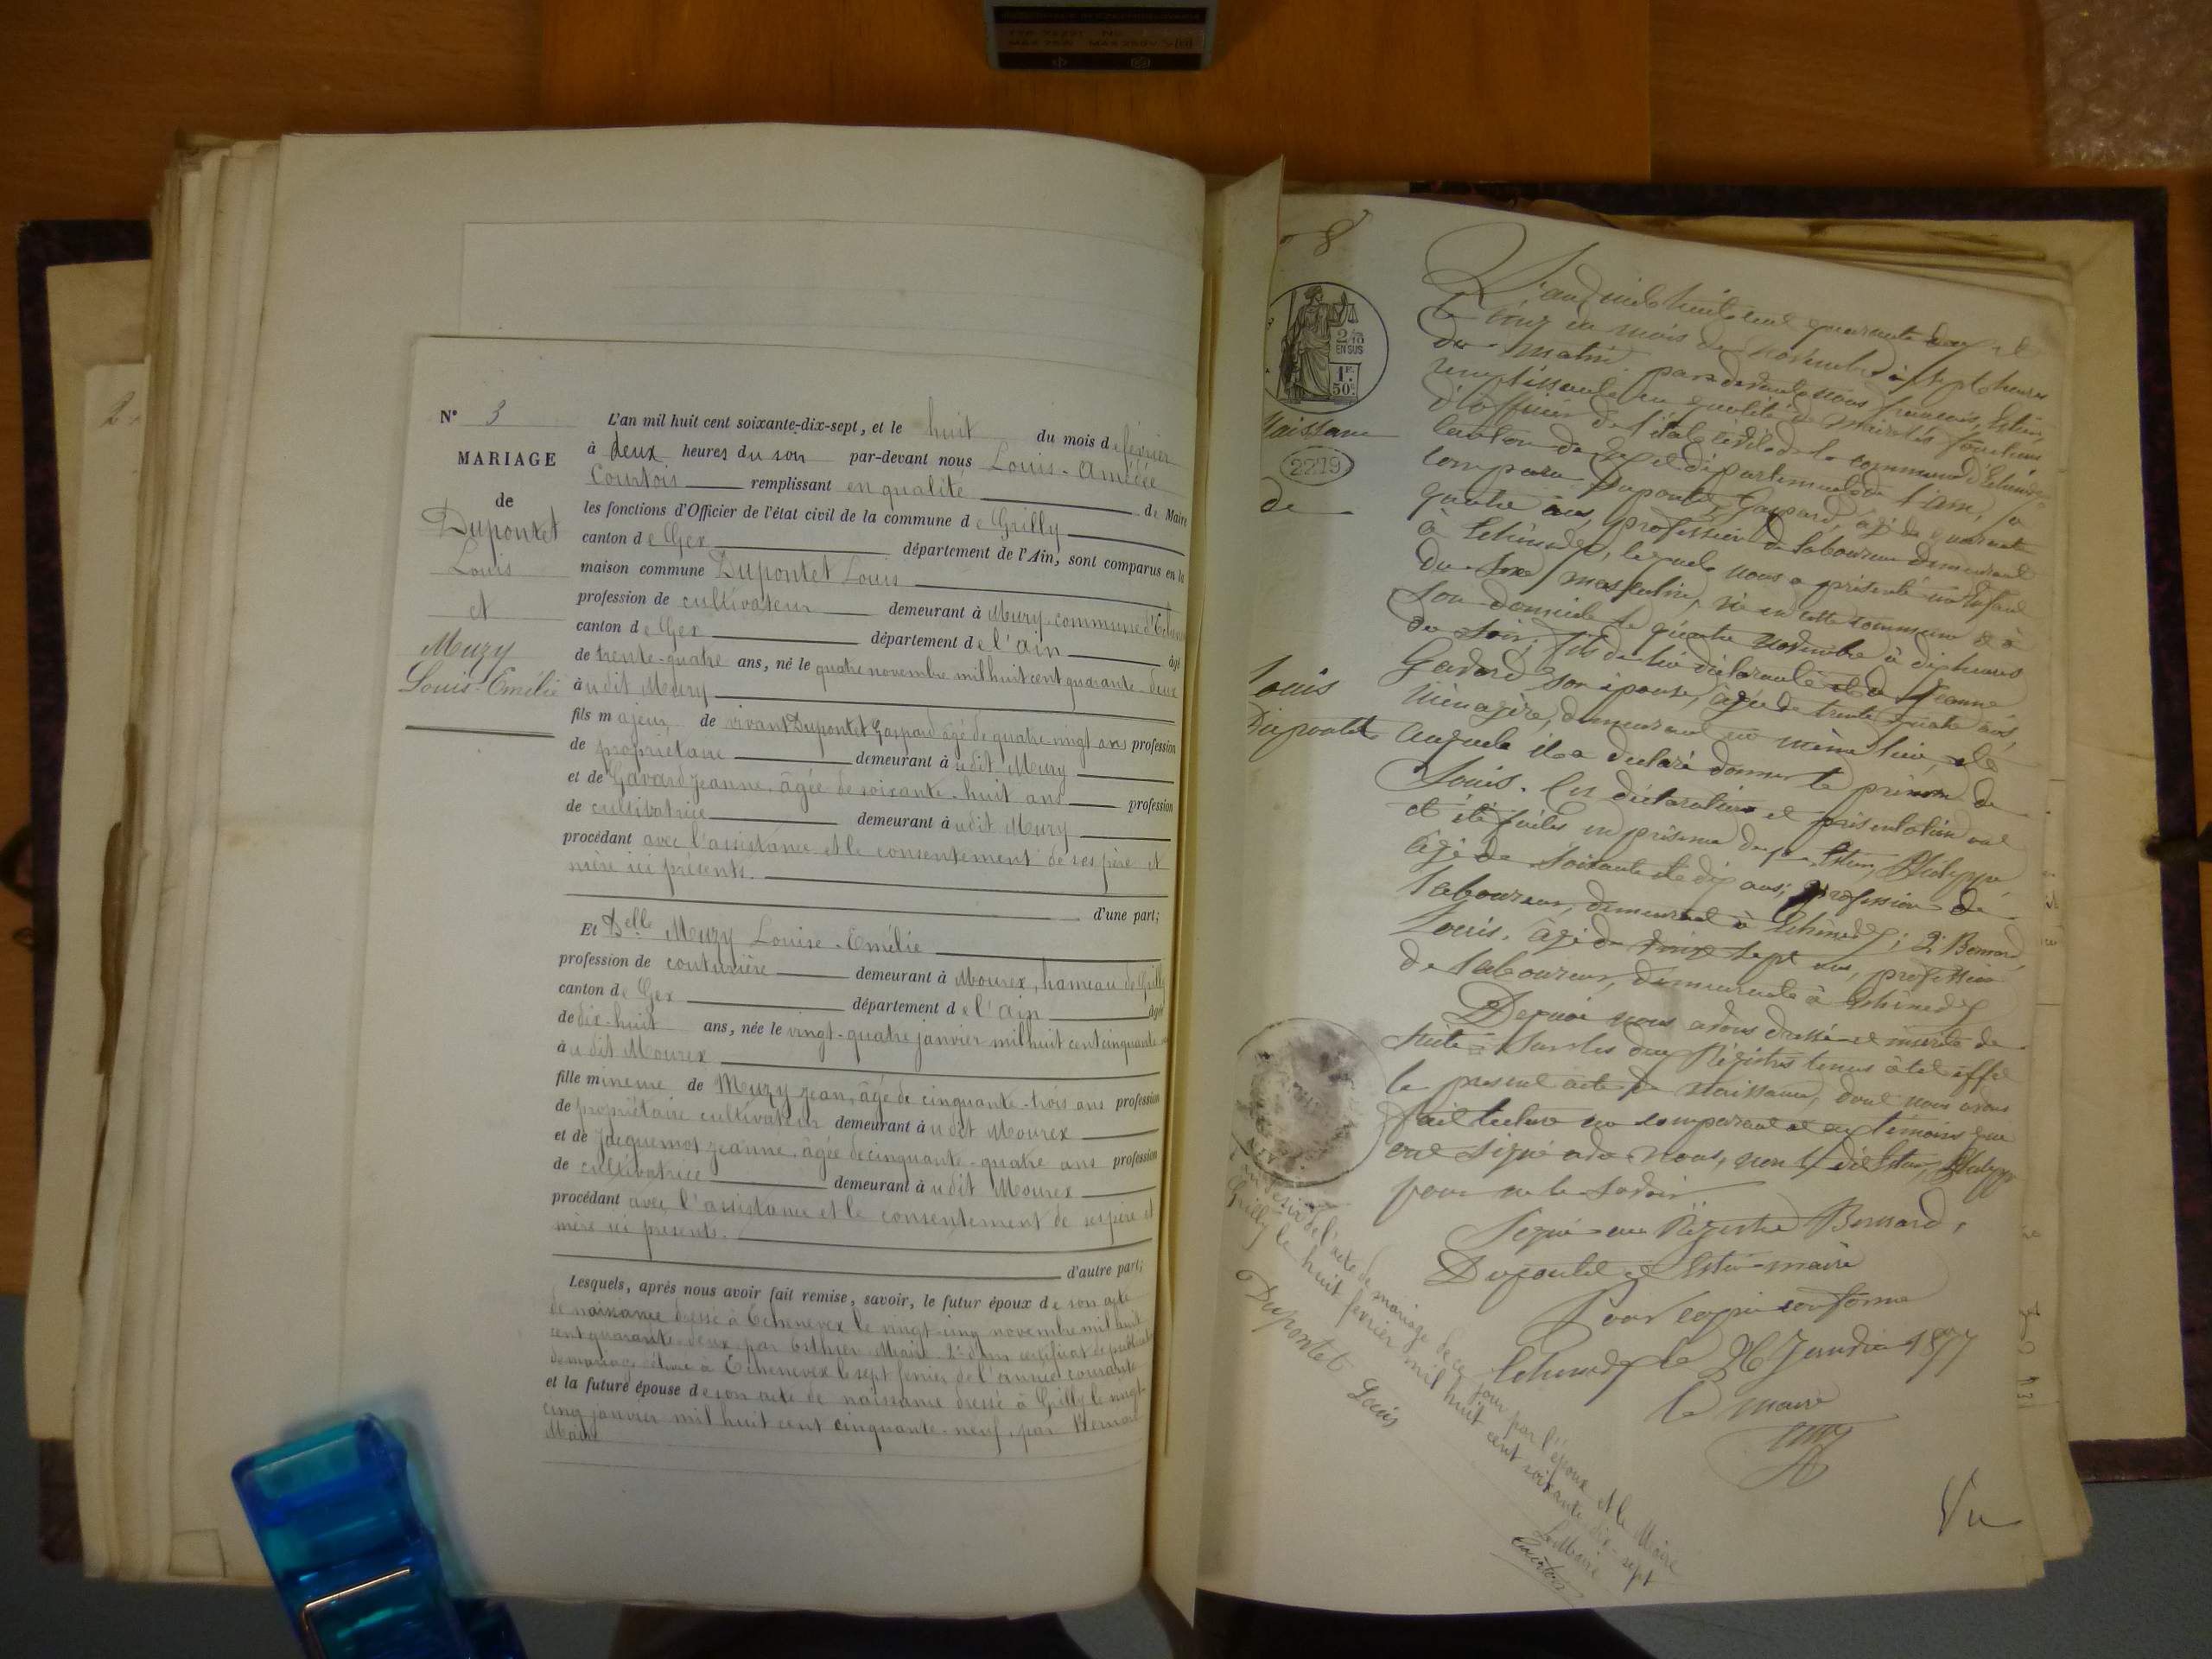 N° 3
MARIAGE
de
Dupontet
Louis
et
Muzy
Louis-Emélie
L'an mil huit cent soixante-dix-sept, et le huit du mois de février
à deux heures du soir par-devant nous Louis-Amédée
Courtois remplissant en qualité de Maire
les fonctions d'Officier de l'état civil de la commune de Grilly
canton de Gex département de l'Ain, sont comparus en la
maison commune Dupontet Louis
profession de cultivateur demeurant à Mury, commune
canton de Gex département de l'ain âgé
de trente-quatre ans, né le quatre novembre mil huit cent quarante-deux
à udit Mury
fils majeur de vivant Dupontet Gaspard âgé de quatre vingt ans profession
de propriétaire demeurant à udit Mury
et de Gavard Jeanne, âgée de soixante-huit ans profession
de cultivatrice demeurant à udit Mury
procédant avec l'assistance et le consentement de ses père et
mère ici présents.
d'une part;
Et Delle Muzy Louise-Emélie
profession de couturière demeurant à Mourex, hameau de Grilly
canton de Gex département de l'ain âgée
de dix-huit ans, née le vingt-quatre janvier mil huit cent cinquante
à udit Mourex
fille mineure de Muzy Jean, âgé de cinquante-trois ans profession
de propriétaire cultivateur demeurant à udit Mourex
et de Jacquemot Jeanne, âgée de cinquante-quatre ans profession
de cultivatrice demeurant à udit Mourex
procédant avec l'assistance et le consentement de ses père et
mère ici présents.
d'autre part;
Lesquels, après nous avoir fait remise, savoir, le futur époux de son acte
de naissance dressé à Echenevex le vingt-cinq novembre mil huit
cent quarante-deux, par Esthier Maire. 2° d'un certificat de
de mariage délivré à Echenevex le sept février de l'année courante
et la future épouse de son acte de naissance dressé à Grilly le vingt-
cinq janvier mil huit cent cinquante-neuf, par
Maire
8
2/10
EN SUS
1F.
50c.
Naissance
2219
de
Louis
Dupontet
L'an mil huit cent quarante deux et
le cinq du mois de novembre à sept heures
du matin par devant nous François
remplissant en qualité de maire les fonctions
d'officier de l'état civil de la commune d'Echenevex
canton de Gex département de l'ain, a
comparu Dupontet Gaspard, âgé de quarante
quatre ans, profession de laboureur demeurant
à Echenevex, lequel nous a présenté un enfant
du sexe masculin, né en cette commune et à
son domicile le quatre novembre à dix heures
du soir, fils de lui déclarant et de Jeanne
Gavard son épouse, âgée de trente quatre ans,
ménagère, demeurant au même lieu, et
auquel il a déclaré donner le prénom de
Louis. Ces déclaration et présentation ont
été faites en présence de Philippe
âgé de soixante et dix ans, profession de
laboureur, demeurant à Echenevex; 2° Bernard
Louis, âgé de sept ans, profession
de laboureur, demeurant à Echenevex
De quoi nous avons dressé et inscrit de
suite sur les deux Régistres tenus à tel effet
le présent acte de naissance, dont nous avons
fait lecture au comparant et aux témoins qui
ont signé avec nous, non le dit Philippe
pour ne le savoir
Signé au Régistre Bernard,
Dupontet maire
Pour copie conforme
Echenevex le 26 Janvier 1877
le maire
de l'acte de mariage de ce jour par l'époux et le Maire
Grilly le huit fevrier mil huit cent soixante dix-sept
Dupontet Louis
Le Maire
Courtois
Vu